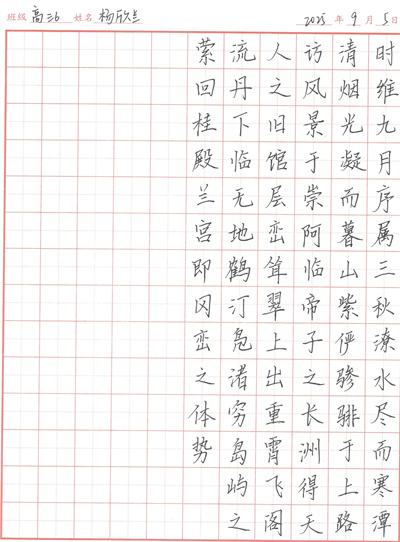 班级 高三6 姓名 杨欣兰 2025年9月5日
时维九月序属三秋潦水尽而寒潭
清烟光凝而暮山紫俨骖𬴂于上路
访风景于崇阿临帝子之长洲得天
人之旧馆层峦耸翠上出重霄飞阁
流丹下临无地鹤汀凫渚穷岛屿之
萦回桂殿兰宫即冈峦之体势